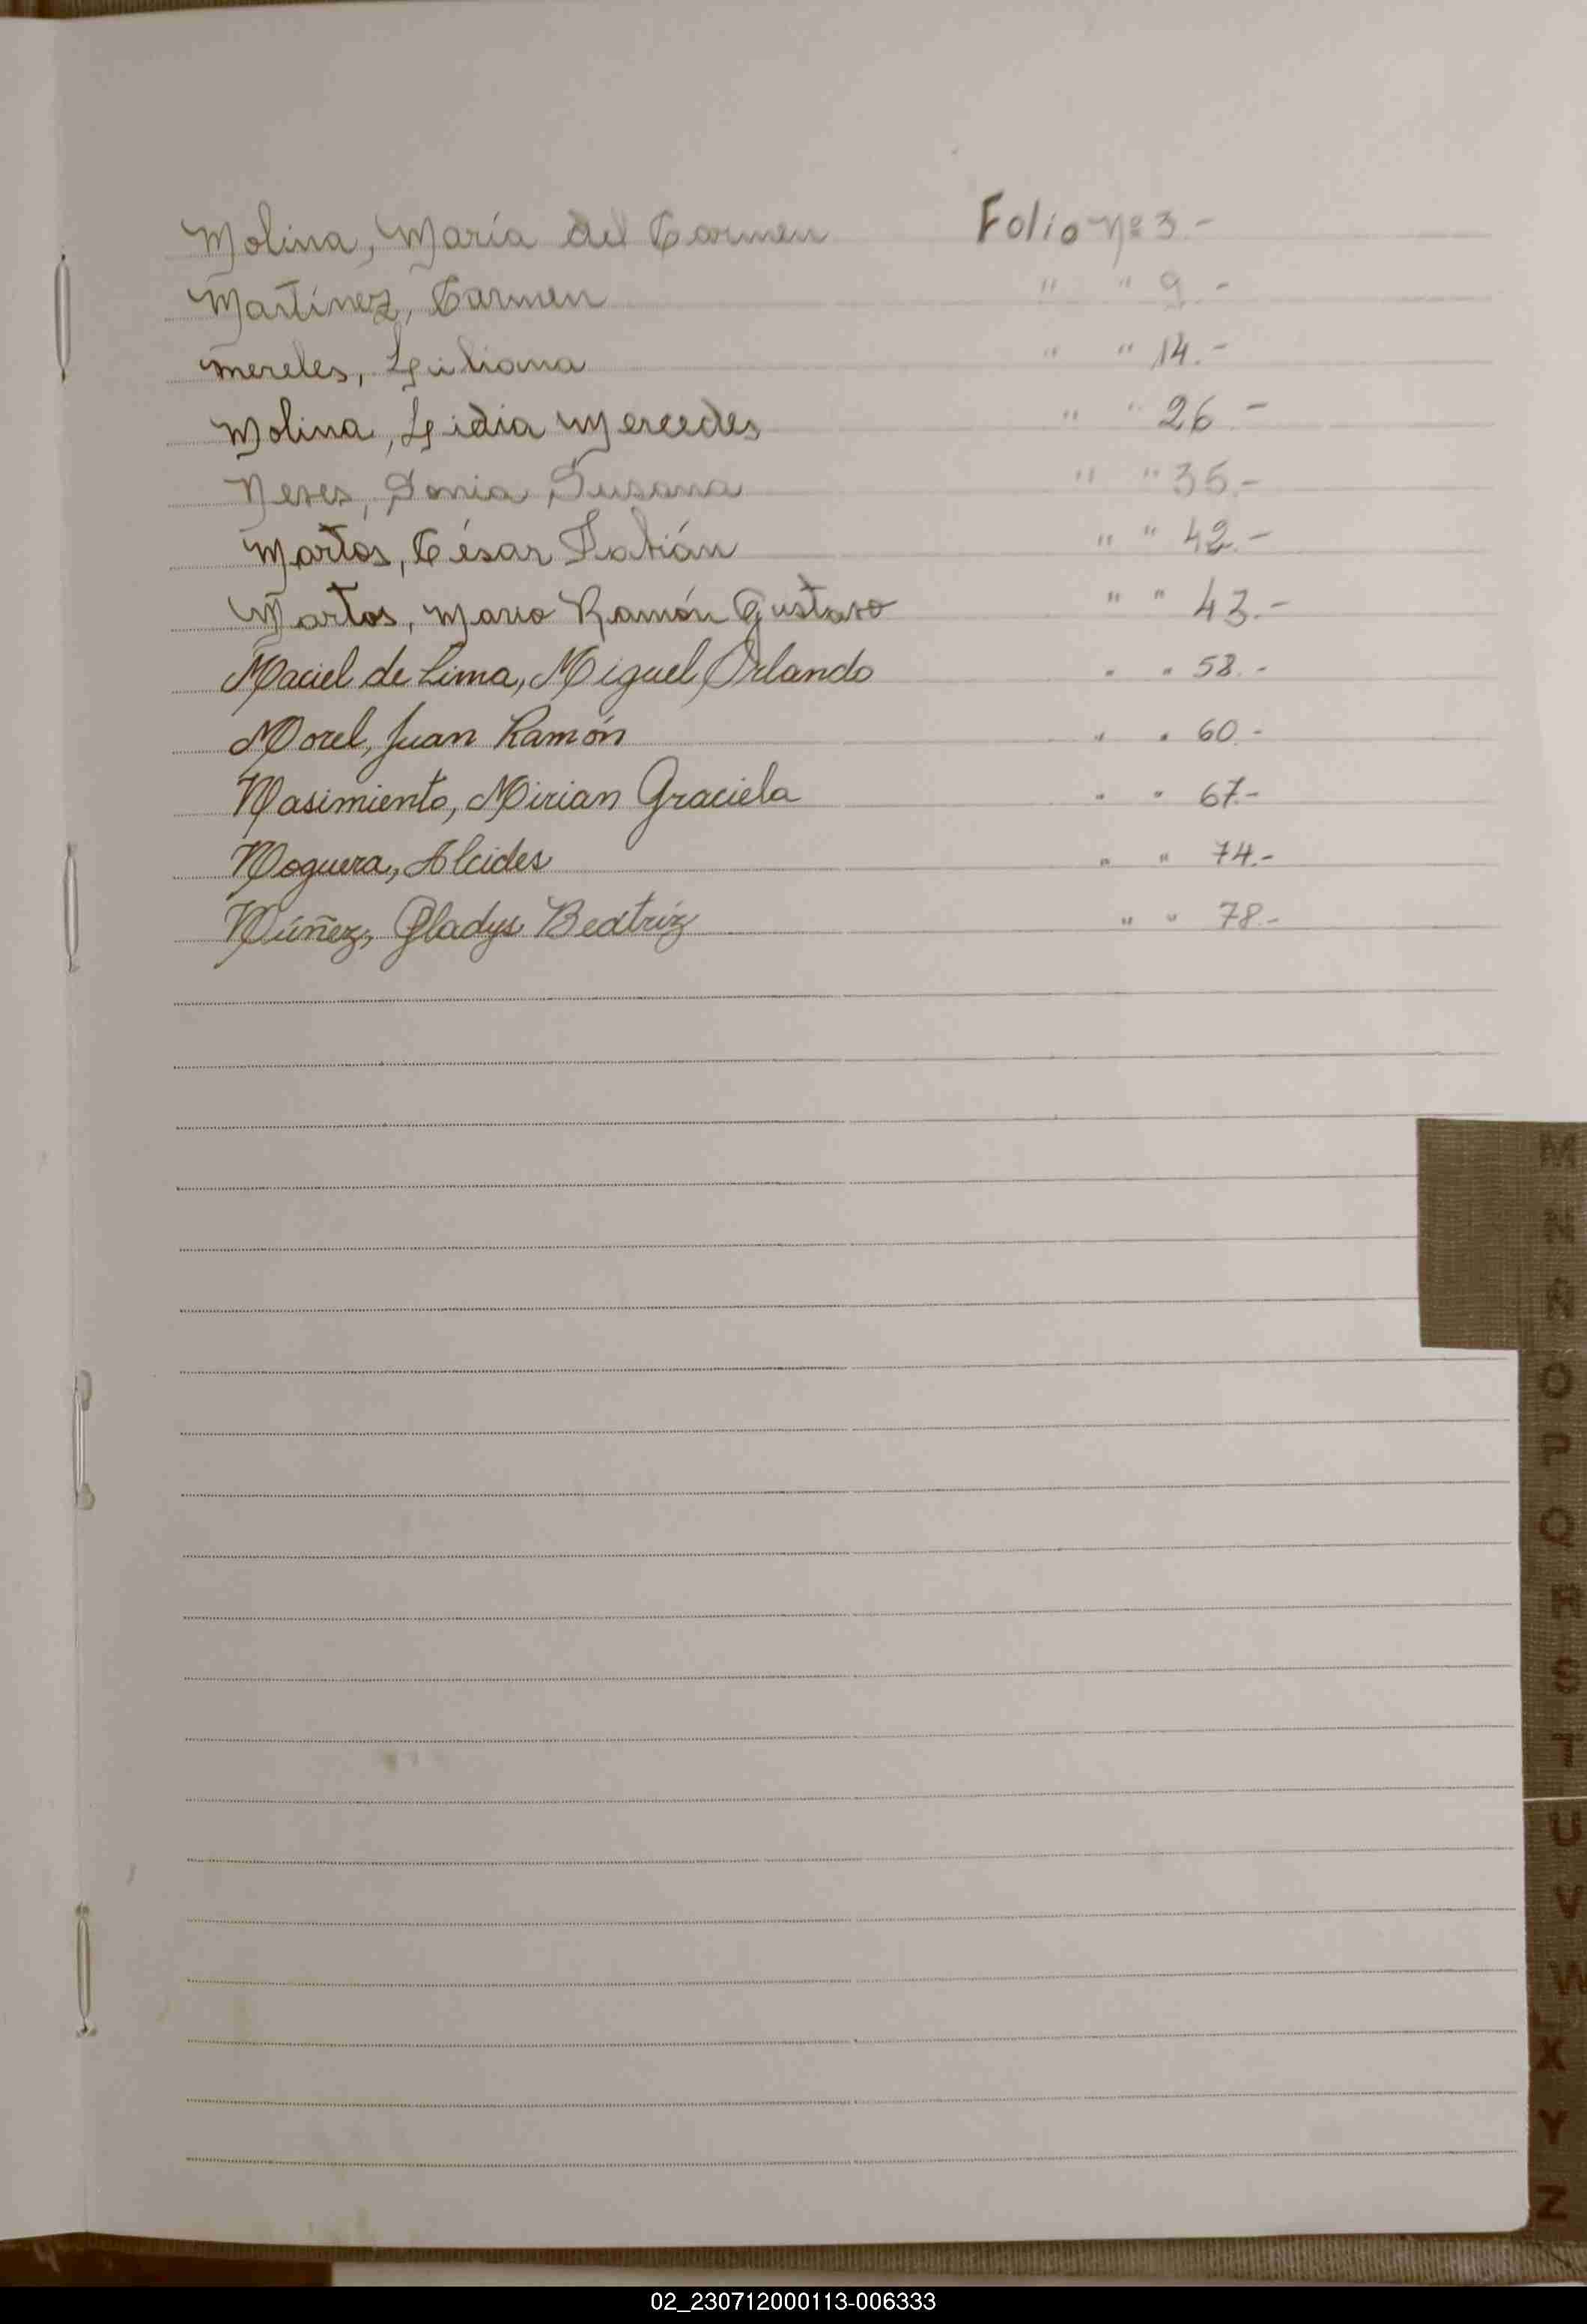 Molina, María del Carmen Folio Nº 3.-
Martínez, Carmen " " 9.-
Mereles, Liliana " " 14.-
Molina, Lidia Mercedes " " 26.-
Neves, Sonia Susana " " 35.-
Martos, César Fabián " " 42.-
Martos, Mario Ramón Gustavo " " 43.-
Maciel de Lima, Miguel Orlando " " 58.-
Morel, Juan Ramón " " 60.-
Nasimiento, Mirian Graciela " " 67.-
Noguera, Alcides " " 74.-
Núñez, Gladys Beatríz " " 78.-
M
N
Ñ
O
P
Q
R
S
T
U
V
W
X
Y
Z
02_230712000113-006333